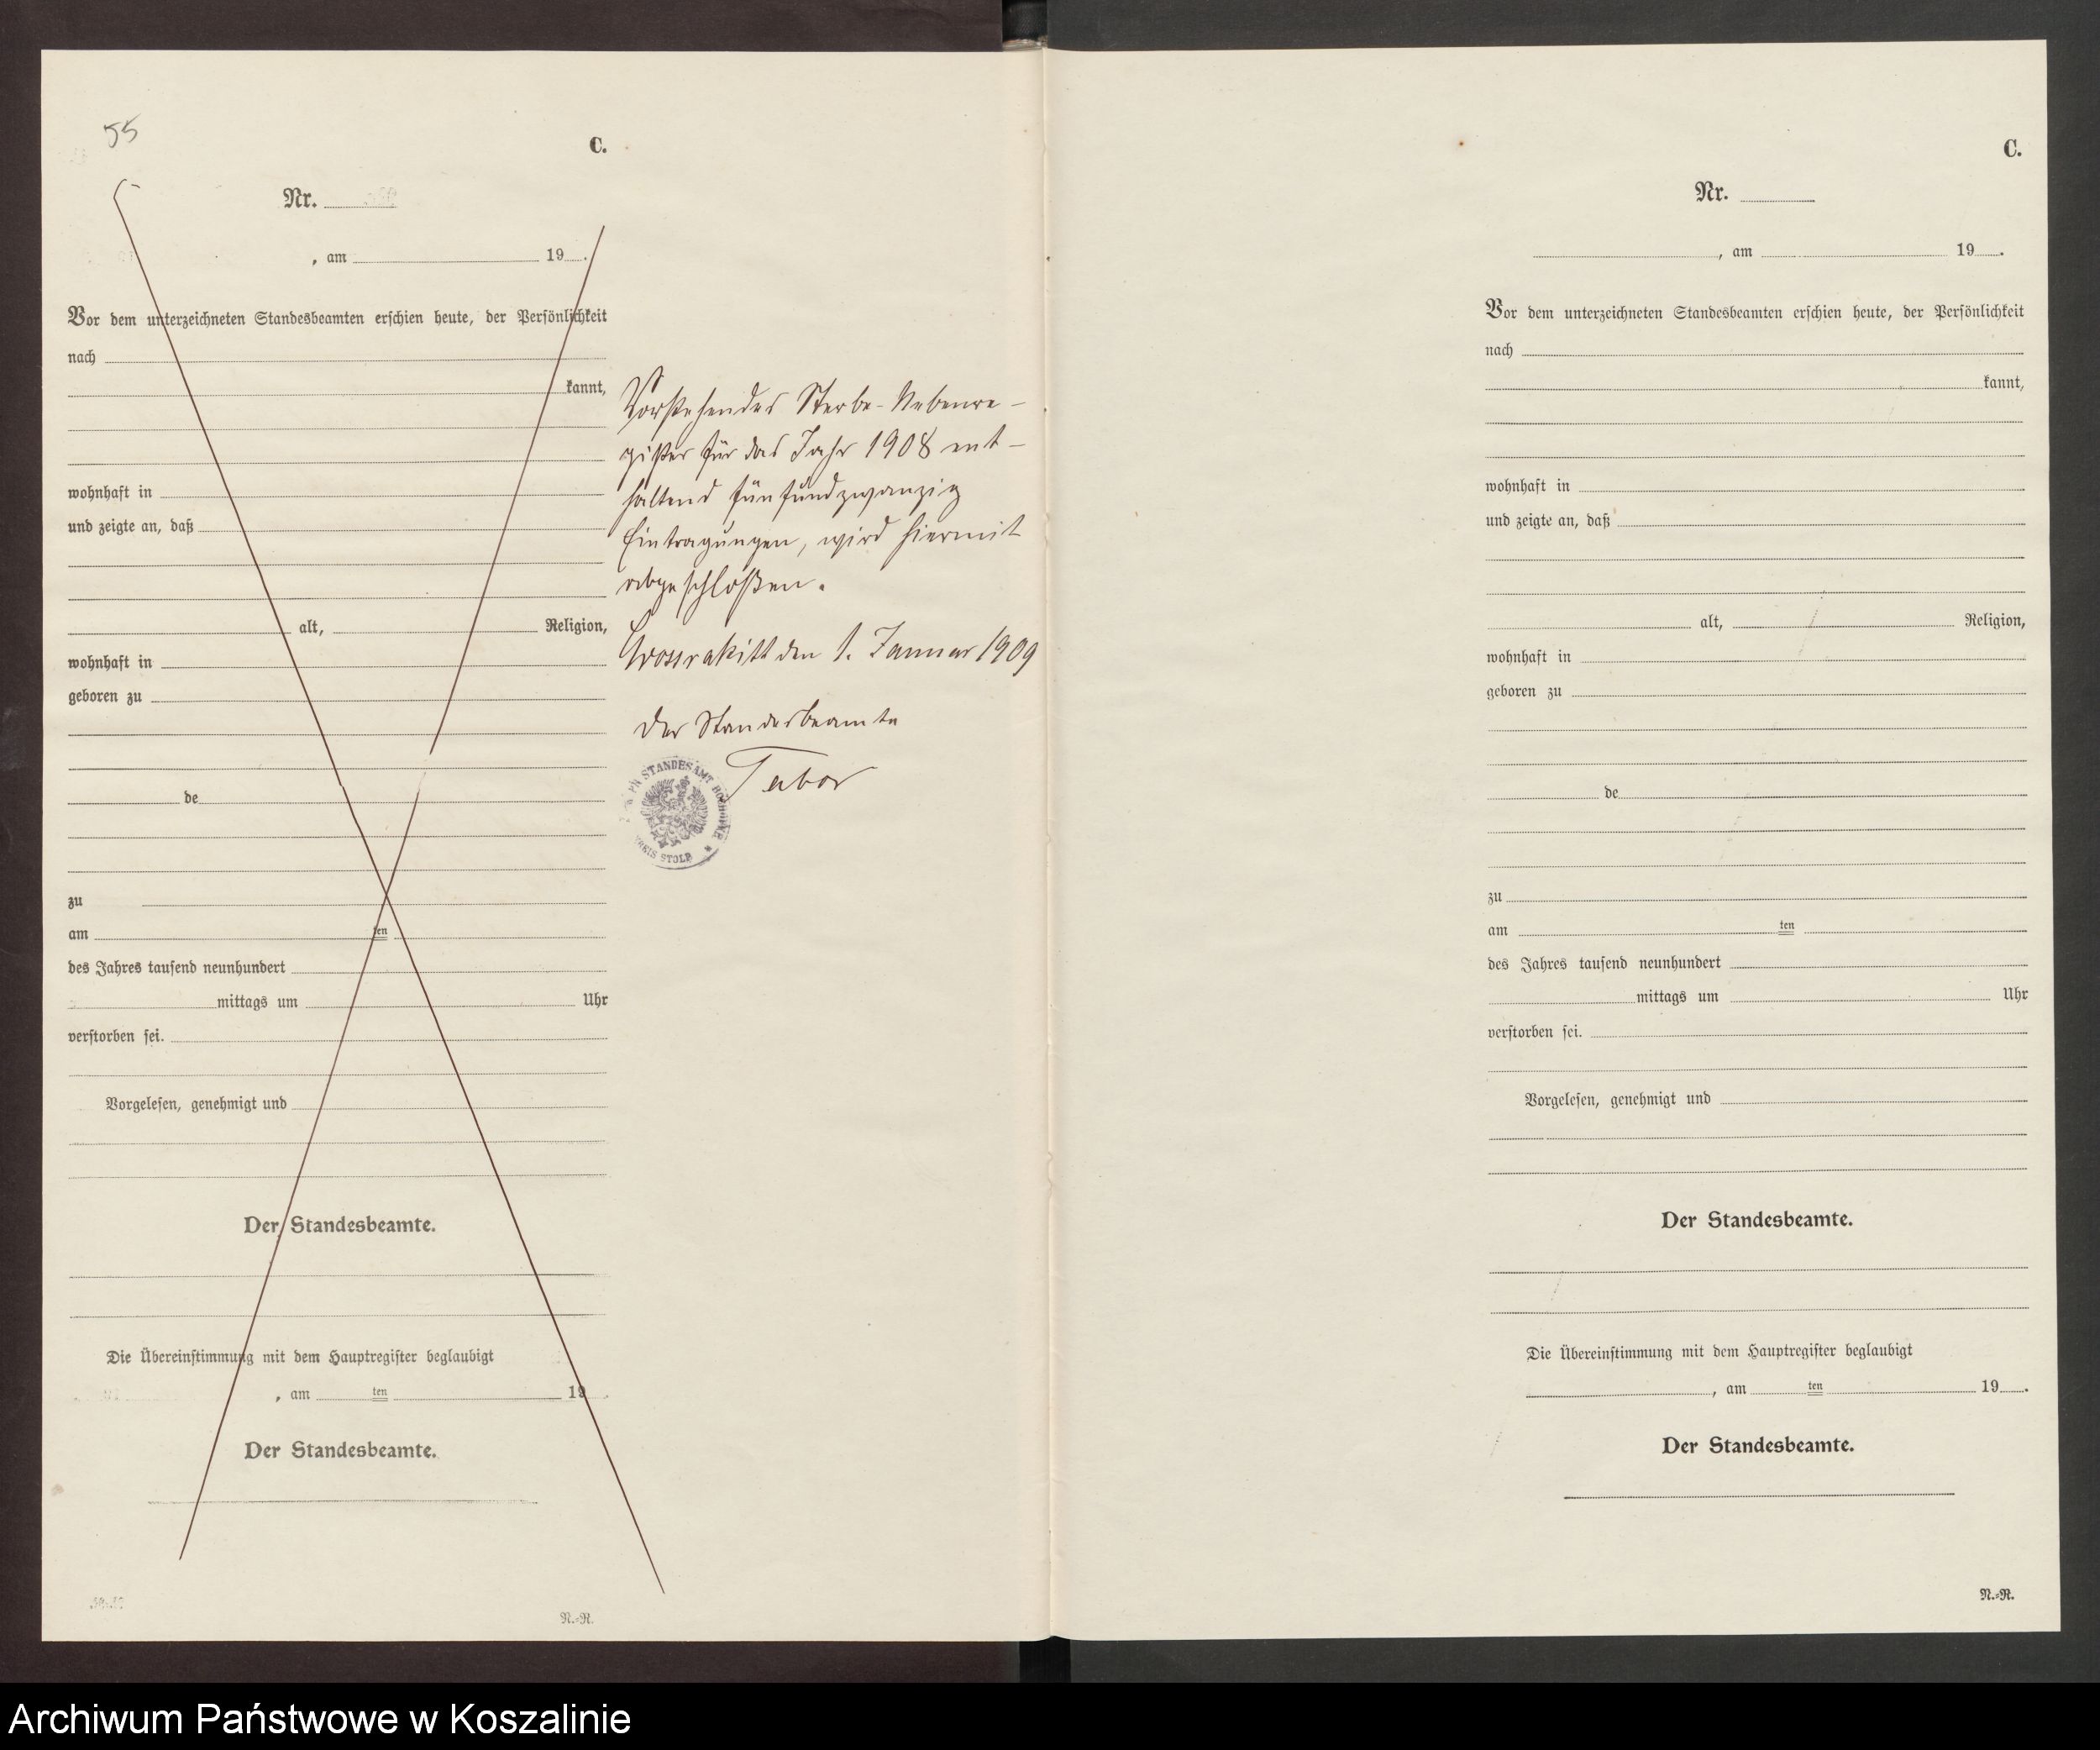 55
C.
Nr.
, am 19 .
Vor dem unterzeichneten Standesbeamten erschien heute, der Persönlichkeit
nach
kannt,
wohnhaft in
und zeigte an, daß
alt, Religion,
wohnhaft in
geboren zu
de
zu
am ten
des Jahres tausend neunhundert
mittags um Uhr
verstorben sei.
Vorgelesen, genehmigt und
Der Standesbeamte.
Die Übereinstimmung mit dem Hauptregister beglaubigt
, am ten 19
Der Standesbeamte.
N.-R.
Vorstehendes Sterbe-Nebenre-
gister für das Jahr 1908 ent-
haltend fünfundzwanzig
Eintragungen, wird hiermit
abgeschloßen.
Grossrakitt den 1. Januar 1909
Der Standesbeamte
Tabor
STANDESAMT
KREIS STOLP
C.
Nr.
, am 19 .
Vor dem unterzeichneten Standesbeamten erschien heute, der Persönlichkeit
nach
kannt,
wohnhaft in
und zeigte an, daß
alt, Religion,
wohnhaft in
geboren zu
de
zu
am ten
des Jahres tausend neunhundert
mittags um Uhr
verstorben sei.
Vorgelesen, genehmigt und
Der Standesbeamte.
Die Übereinstimmung mit dem Hauptregister beglaubigt
, am ten 19 .
Der Standesbeamte.
N.-R.
Archiwum Państwowe w Koszalinie